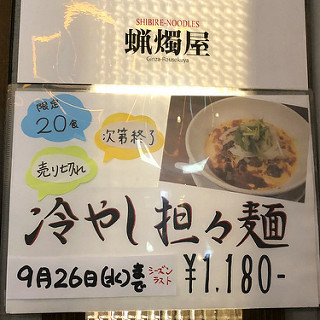 SHIBIRE-NOODLES
蝋燭屋
Ginza Rousokuya
限定
20食
次第終了
売り切れ
冷やし担々麺
9月26日(水)まで
シーズン
ラスト
¥1.180-